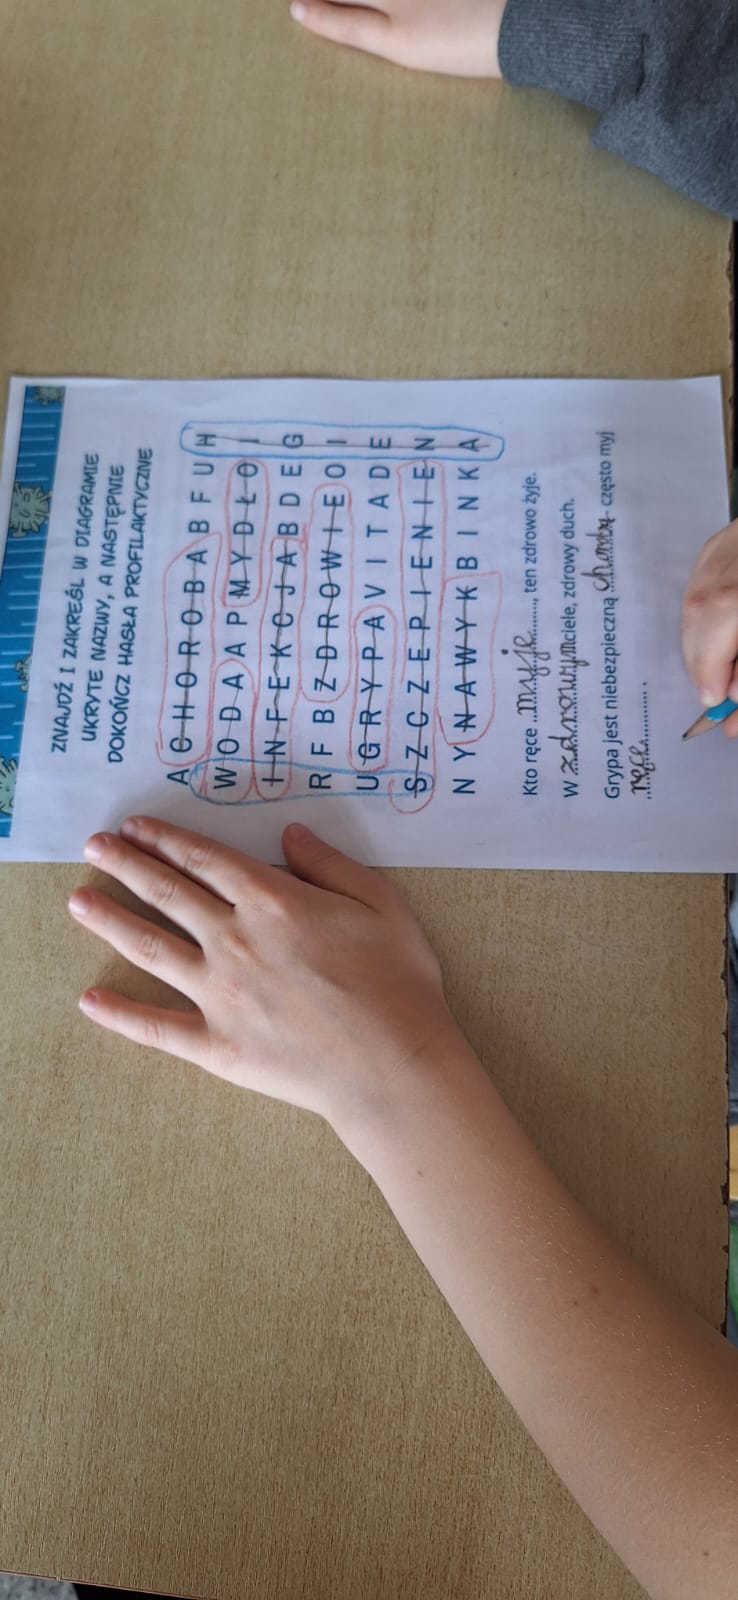 ZNAJDŹ I ZAKREŚL W DIAGRAMIE
UKRYTE NAZWY, A NASTĘPNIE
DOKOŃCZ HASŁA PROFILAKTYCZNE
A C H O R O B A B F U H
W O D A A P M Y D Ł O I
I N F E K C J A B D E G
R F B Z D R O W I E O I
U G R Y P A V I T A D E
S Z C Z E P I E N I E N
N Y N A W Y K B I N K A
Kto ręce ..myje.........., ten zdrowo żyje.
W zdrowym ciele, zdrowy duch.
Grypa jest niebezpieczną chorobą - często myj
ręce.............. .